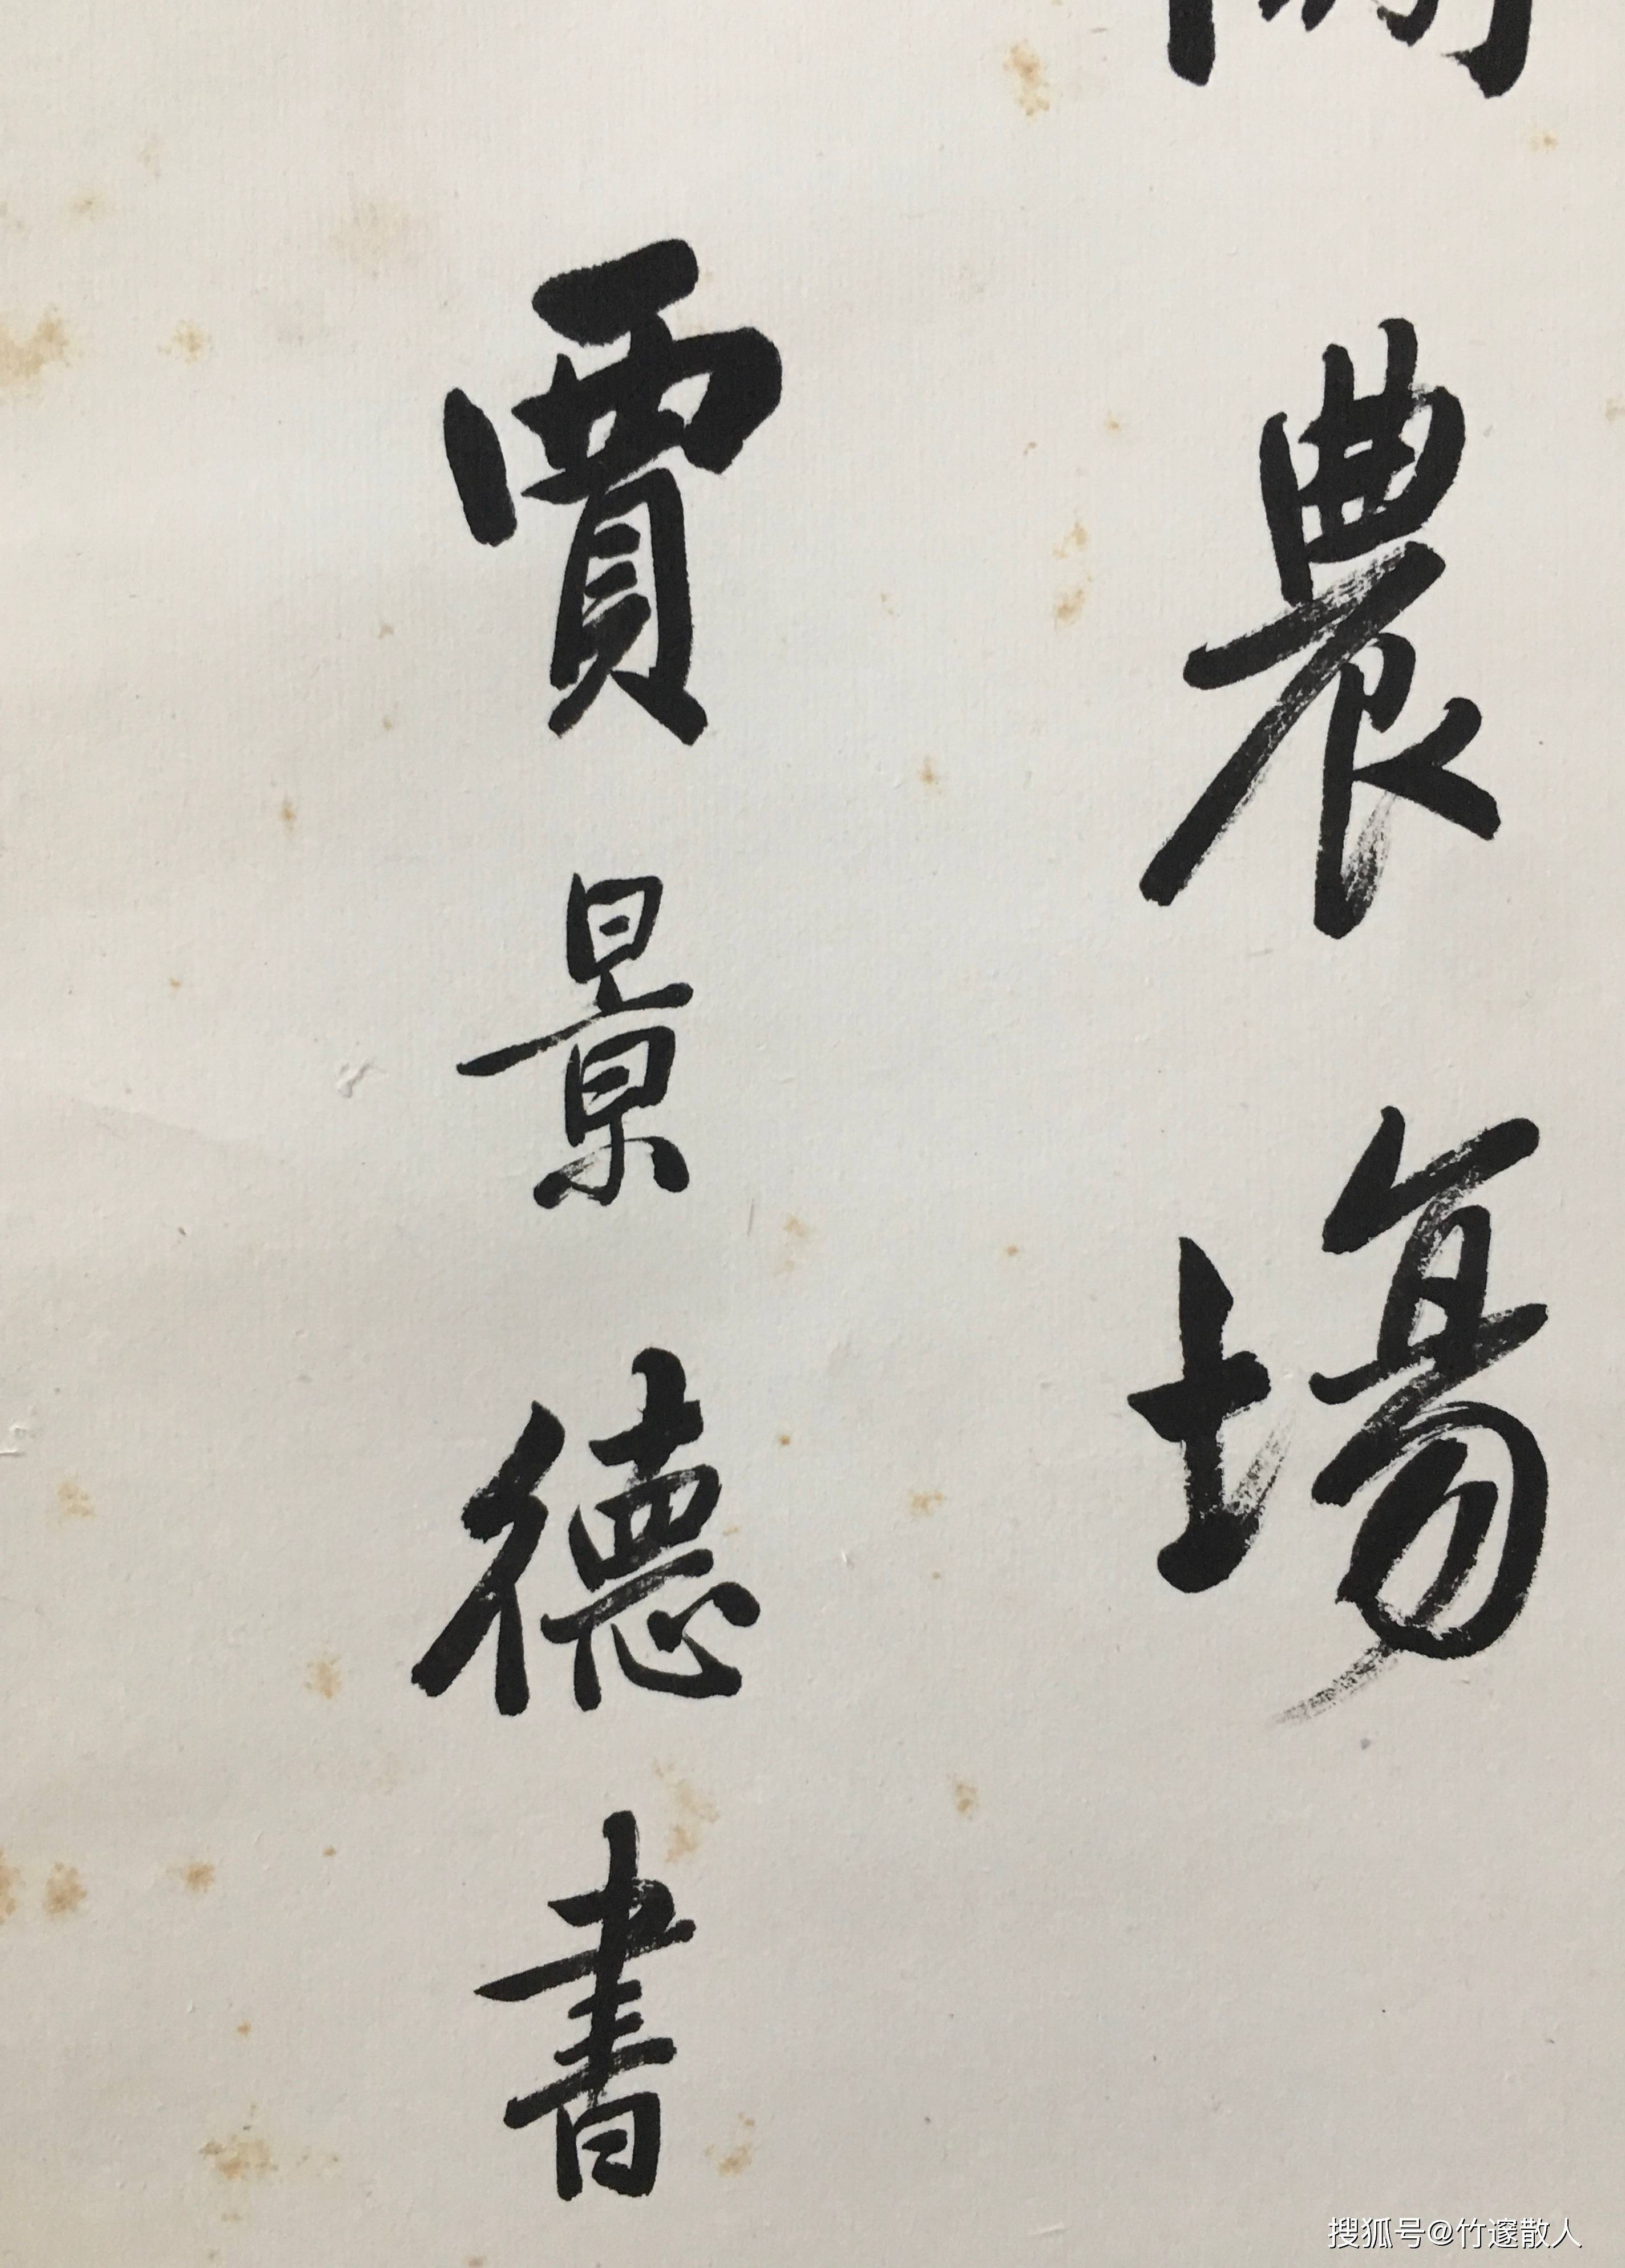 農場
賈景德書
搜狐号@竹邃散人